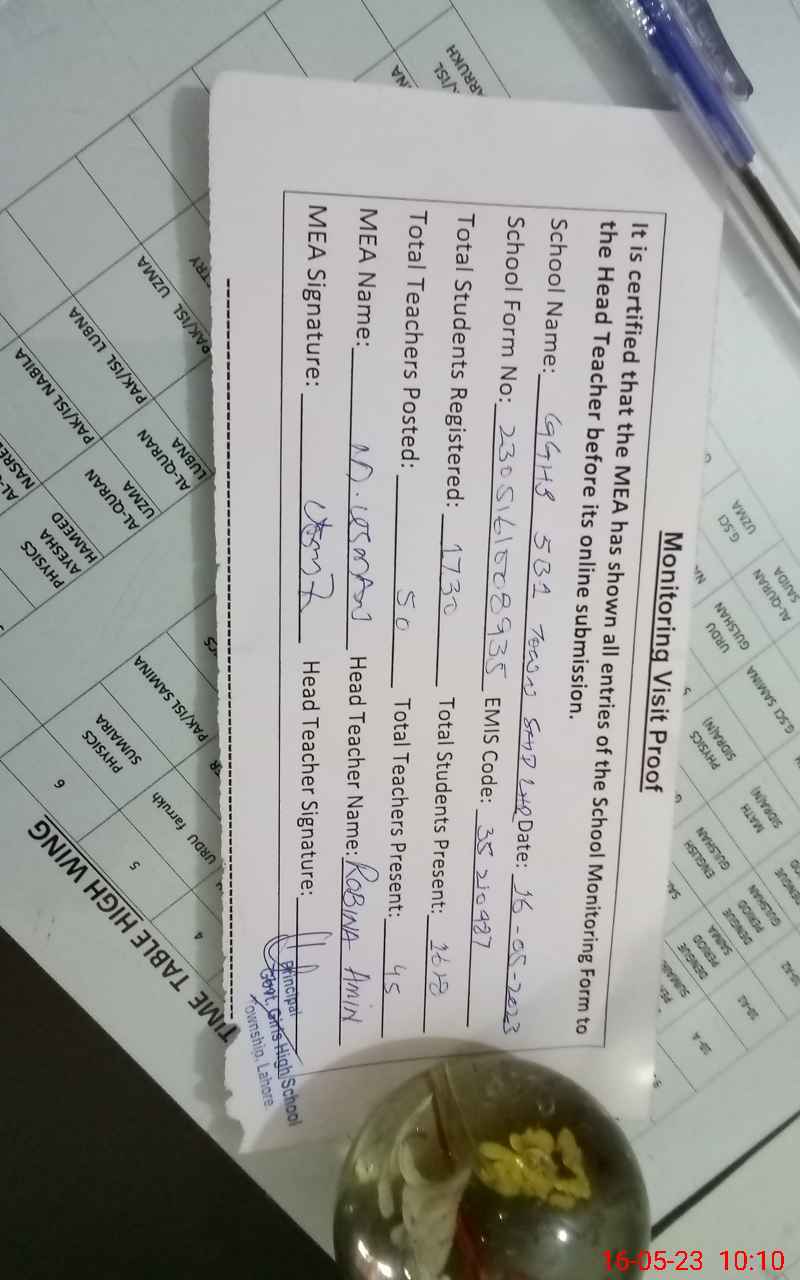 Monitoring Visit Proof
It is certified that the MEA has shown all entries of the School Monitoring Form to
the Head Teacher before its online submission.
School Name: GGHS 5B1 TOWN SHIP LHR Date: 16-05-2023
School Form No: 2305161008935 EMIS Code: 35210987
Total Students Registered: 1730 Total Students Present: 1618
Total Teachers Posted: 50 Total Teachers Present: 45
MEA Name: M. USMAN Head Teacher Name: ROBINA Amin
MEA Signature: Head Teacher Signature:
Principal
Govt. Girls High School
Township, Lahore
TIME TABLE HIGH WING
4
5
6
URDU farrukh
PHYSICS
SUMAIRA
PAK/ISL SAMINA
PHYSICS
AYESHA
HAMEED
AL-QURAN
UZMA
AL-QURAN
LUBNA
PAK/ISL NABILA
PAK/ISL LUBNA
PAK/ISL UZMA
G.SCI
UZMA
AL-QURAN
SAJIDA
URDU
GULSHAN
G.SCI SAMINA
PHYSICS
SIDRA(N)
MATH
SIDRA(N)
ENGLISH
GULSHAN
DENGUE
PERIOD
SAIMA
DENGUE
PERIOD
GULSHAN
DENGUE
PERIOD
10-A
10-A2
16-05-23 10:10